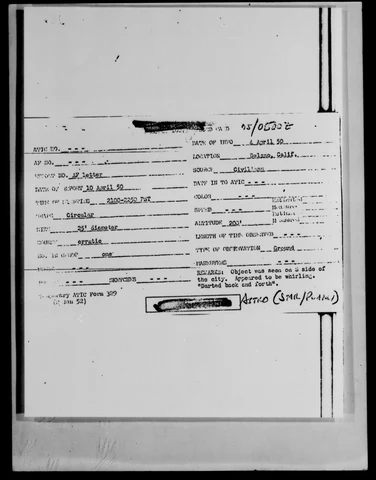 75/0500Z
ATIC NO. ---
DATE OF INFO 4 April 50
AF NO. ---
LOCATION Selano, Calif.
REPORT NO. AF letter
SOURCE Civilian
DATE OF REPORT 10 April 50
DATE IN TO ATIC ---
TIME OF SIGHTING 2100-2250 PWT
COLOR ---
SHAPE Circular
SPEED ---
SIZE 25' diameter
ALTITUDE 200'
COURSE erratic
LENGTH OF TIME OBSERVED
NO. IN GROUP one
TYPE OF OBSERVATION Ground
SOUND ---
MANEUVERS ---
--- SKETCHES ---
REMARKS: Object was seen on S side of
the city. Appeared to be whirling.
"Darted back and forth".
Temporary ATIC Form 329
(2 Jan 52)
ASTRO (STAR/PLANET)